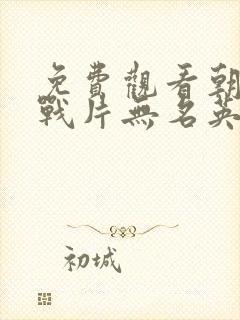 免費觀看朝
戰片無名英
初城